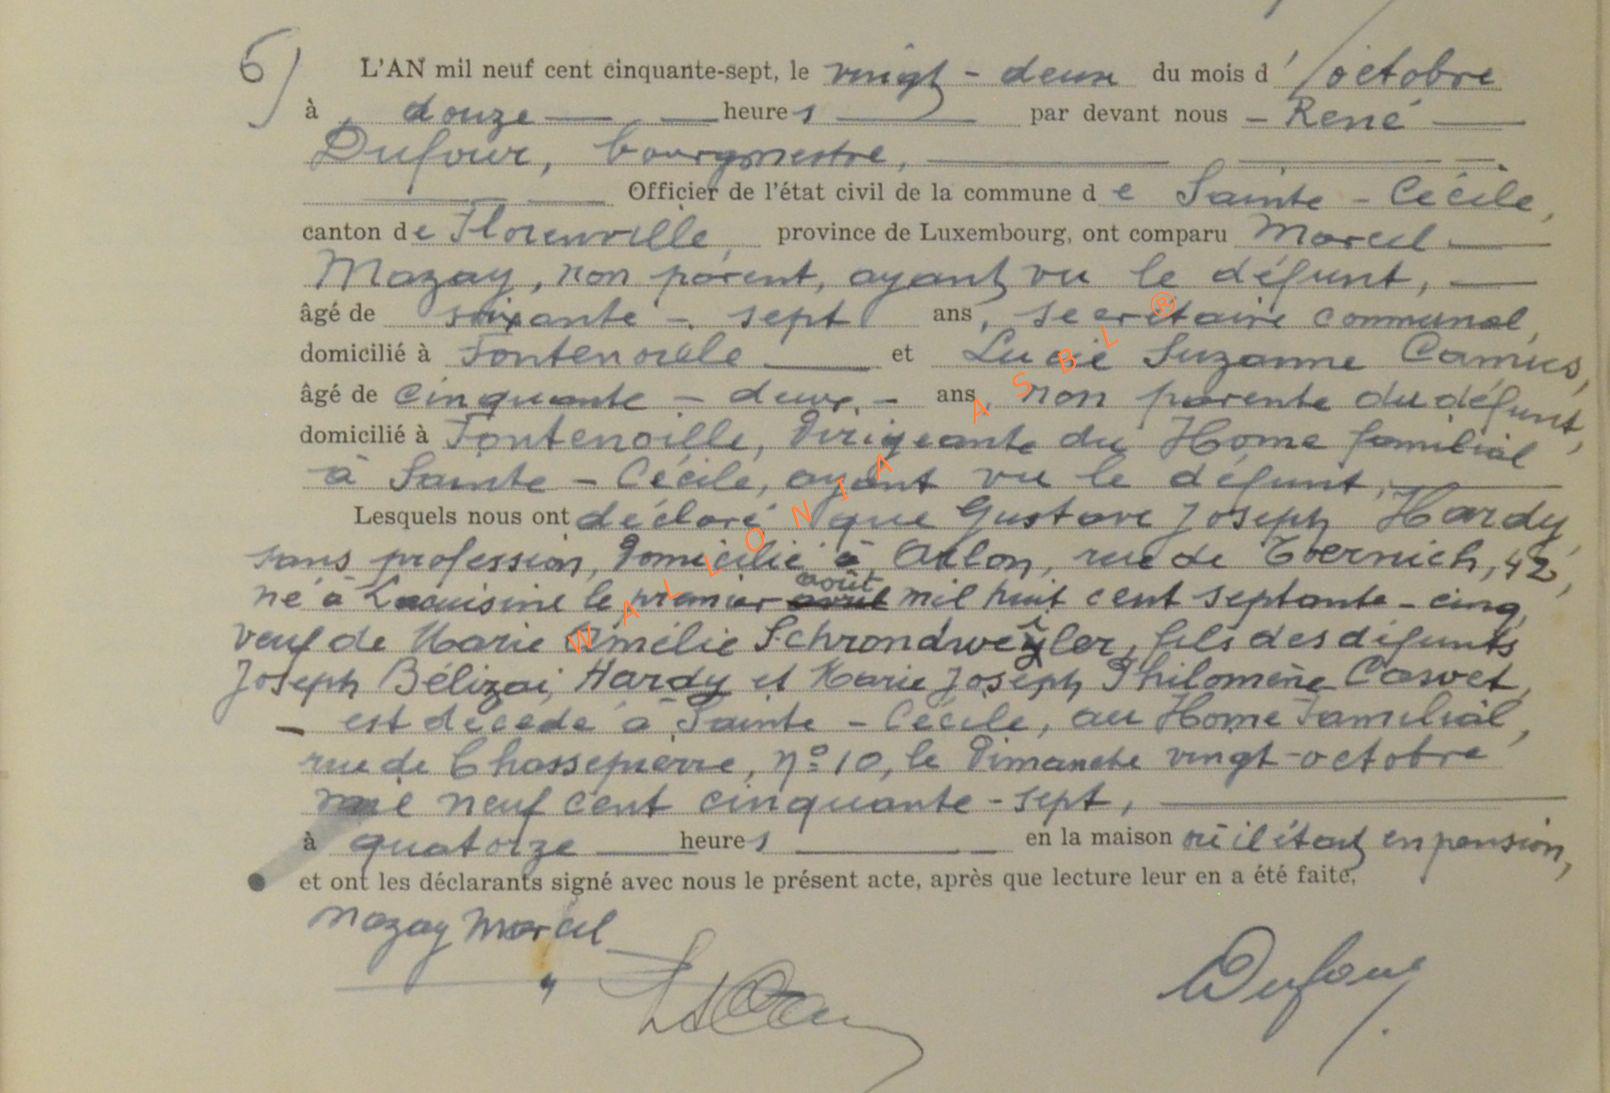 6) L'AN mil neuf cent cinquante-sept, le vingt - deux du mois d'octobre
à douze heures par devant nous - René
Dufour, bourgmestre,
Officier de l'état civil de la commune de Sainte - Cécile,
canton de Florenville, province de Luxembourg, ont comparu Marcel
Mazay, non parent, ayant vu le défunt,
âgé de soixante - sept ans, secrétaire communal,
domicilié à Fontenoille et Lucie Suzanne Camus,
âgé de cinquante - deux - ans, non parente du défunt,
domicilié à Fontenoille, Dirigeante du Home familial
à Sainte - Cécile, ayant vu le défunt,
Lesquels nous ont déclaré que Gustave Joseph Hardy,
sans profession, Domicilié à Arlon, rue de Toernich, 42,
né à Lacuisine le premier août avril mil huit cent septante - cinq,
veuf de Marie Amélie Schrondweiler, fils des défunts
Joseph Bélizai Hardy et Marie Joseph Philomène Casvet,
- est décédé à Sainte - Cécile, au Home Familial,
rue de Chassepierre, n° 10, le Dimanche vingt octobre
mil neuf cent cinquante - sept,
à quatorze heures en la maison où il était en pension,
et ont les déclarants signé avec nous le présent acte, après que lecture leur en a été faite.
Mazay Marcel
Dufour
WALLONIA ASBL ®